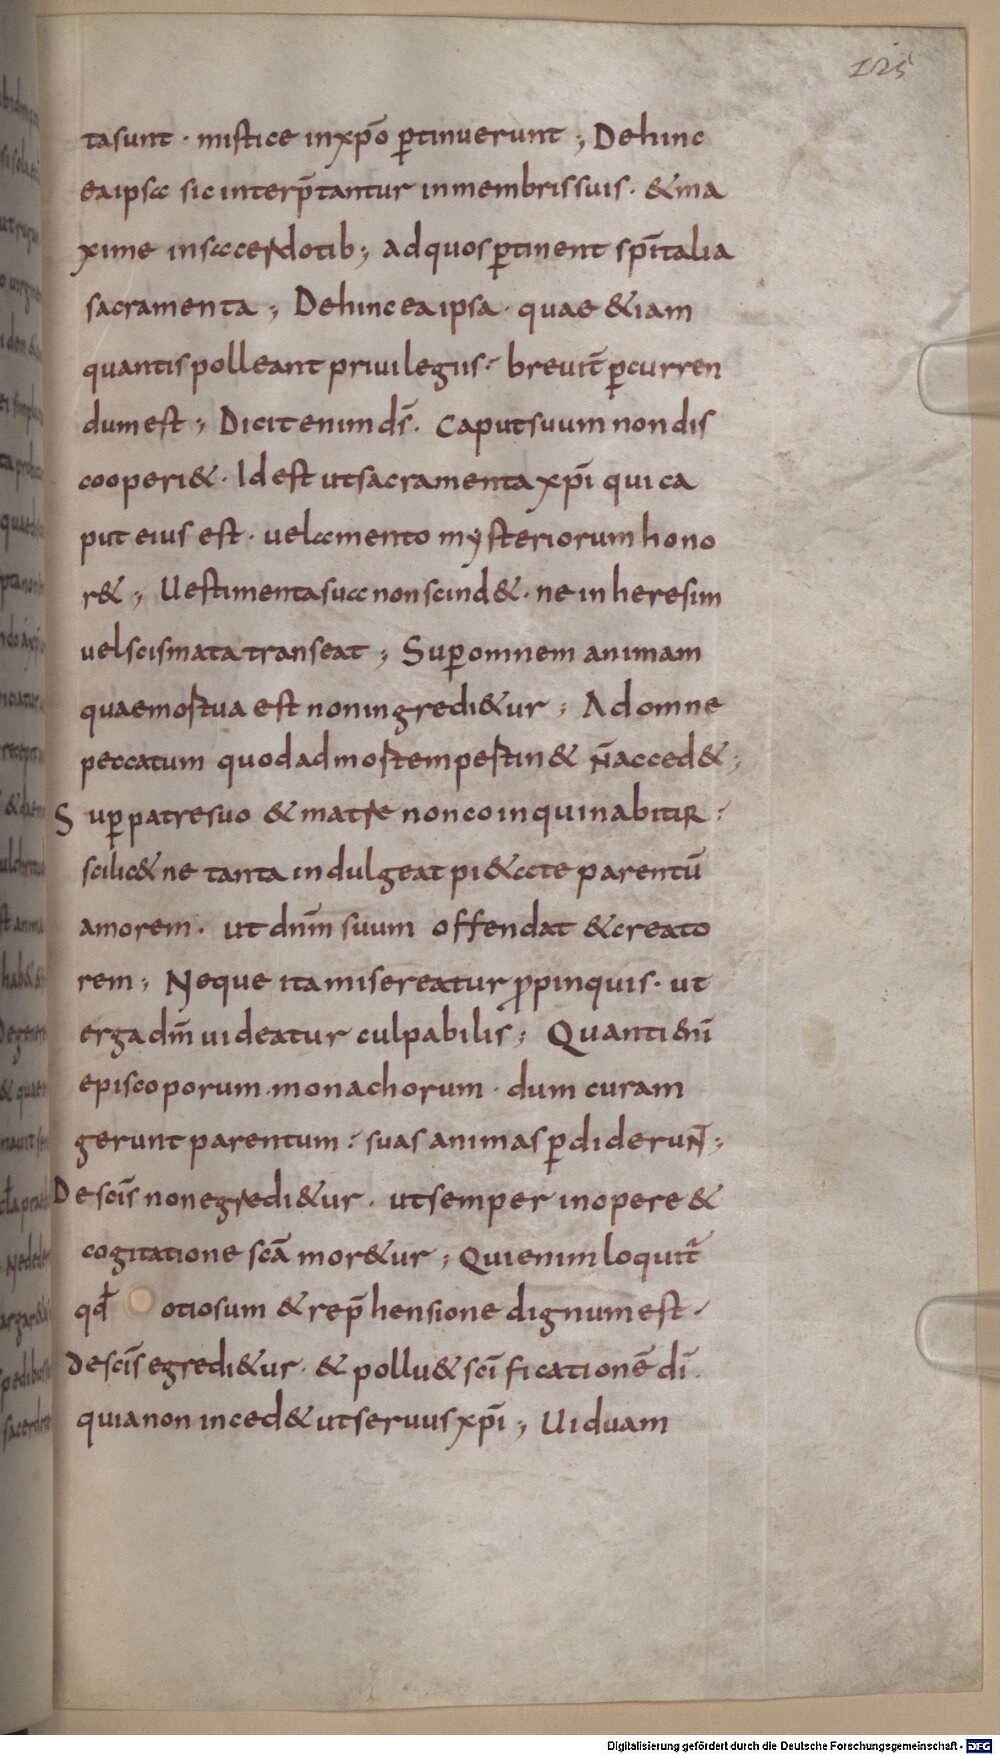 125
tasunt · mistice inxp̄o ꝑtinuerunt ; Dehinc
eaipsa sic interp̄tantur inmembrissuis · &ma
xime insacerdotib; adquosꝑtinent sp̄italia
sacramenta ; Dehinceaipsa · quae &iam
quantispolleant priuilegiis : breuit̄ ꝑcurren
dumest ; Dicitenim ds̄ . Caputsuumnondis
cooperi& · Idest utsacramentaxp̄i quica
put eius est · uelamento mysteriorumhono
r& ; Uestimentasua nonscind& · ne inheresim
uelscismatatranseat ; Suꝑomnem animam
quaemortua est noningredi&ur ; Adomne
peccatum quodadmortemꝑtin& n̄acced& ;
Suꝑpatresuo &matre noncoinquinabitur :
scilic&ne tanta indulgeat pi&ate parentū
amorem · ut dn̄m suum offendat &creato
rem ; Neque itamisereatur ꝓpinquis · ut
ergadm̄uideatur culpabilis ; Quanti&n̄i
episcoporum · monachorum · dum curam
gerunt parentum : suas animasꝑdiderunt ;
Descīs nonegredi&ur · utsemper inopere &
cogitatione scā mor&ur ; Quienimloquit̄
qd̄ otiosum &rep̄hensione dignumest ·
descīs egredi&ur · & pollu& scīficationē dī .
quianon inced& utseruusxp̄i ; Uiduam
Digitalisierung gefördert durch die Deutsche Forschungsgemeinschaft - DFG